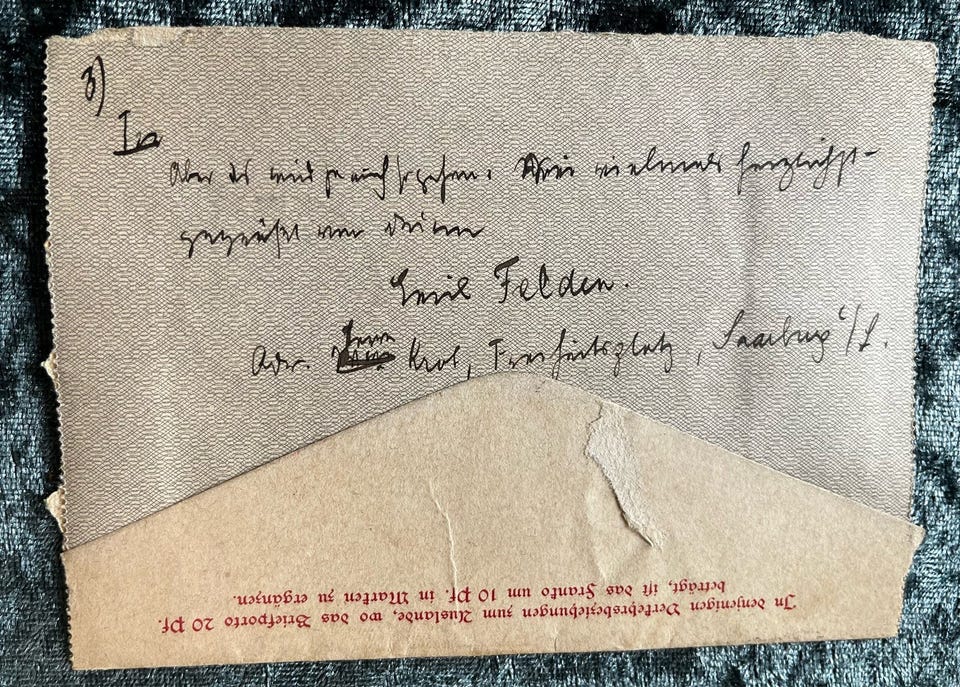 3)
Aber es wird ja auch so gehen. vielmals herzlichst
gegrüßt von Deinem
Emil Felden.
Adr. Krol, Freiheitsplatz, Saarburg i/L.
In denjenigen Verkehrsbeziehungen zum Auslande, wo das Briefporto 20 Pf.
beträgt, ist das Franko um 10 Pf. in Marken zu ergänzen.